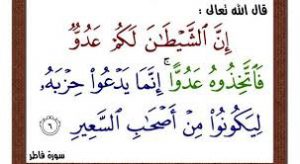 قال الله تعالى :
إِنَّ ٱلشَّيْطَٰنَ لَكُمْ عَدُوٌّ
فَٱتَّخِذُوهُ عَدُوًّا ۚ إِنَّمَا يَدْعُوا۟ حِزْبَهُۥ
لِيَكُونُوا۟ مِنْ أَصْحَٰبِ ٱلسَّعِيرِ ٦
سورة فاطر